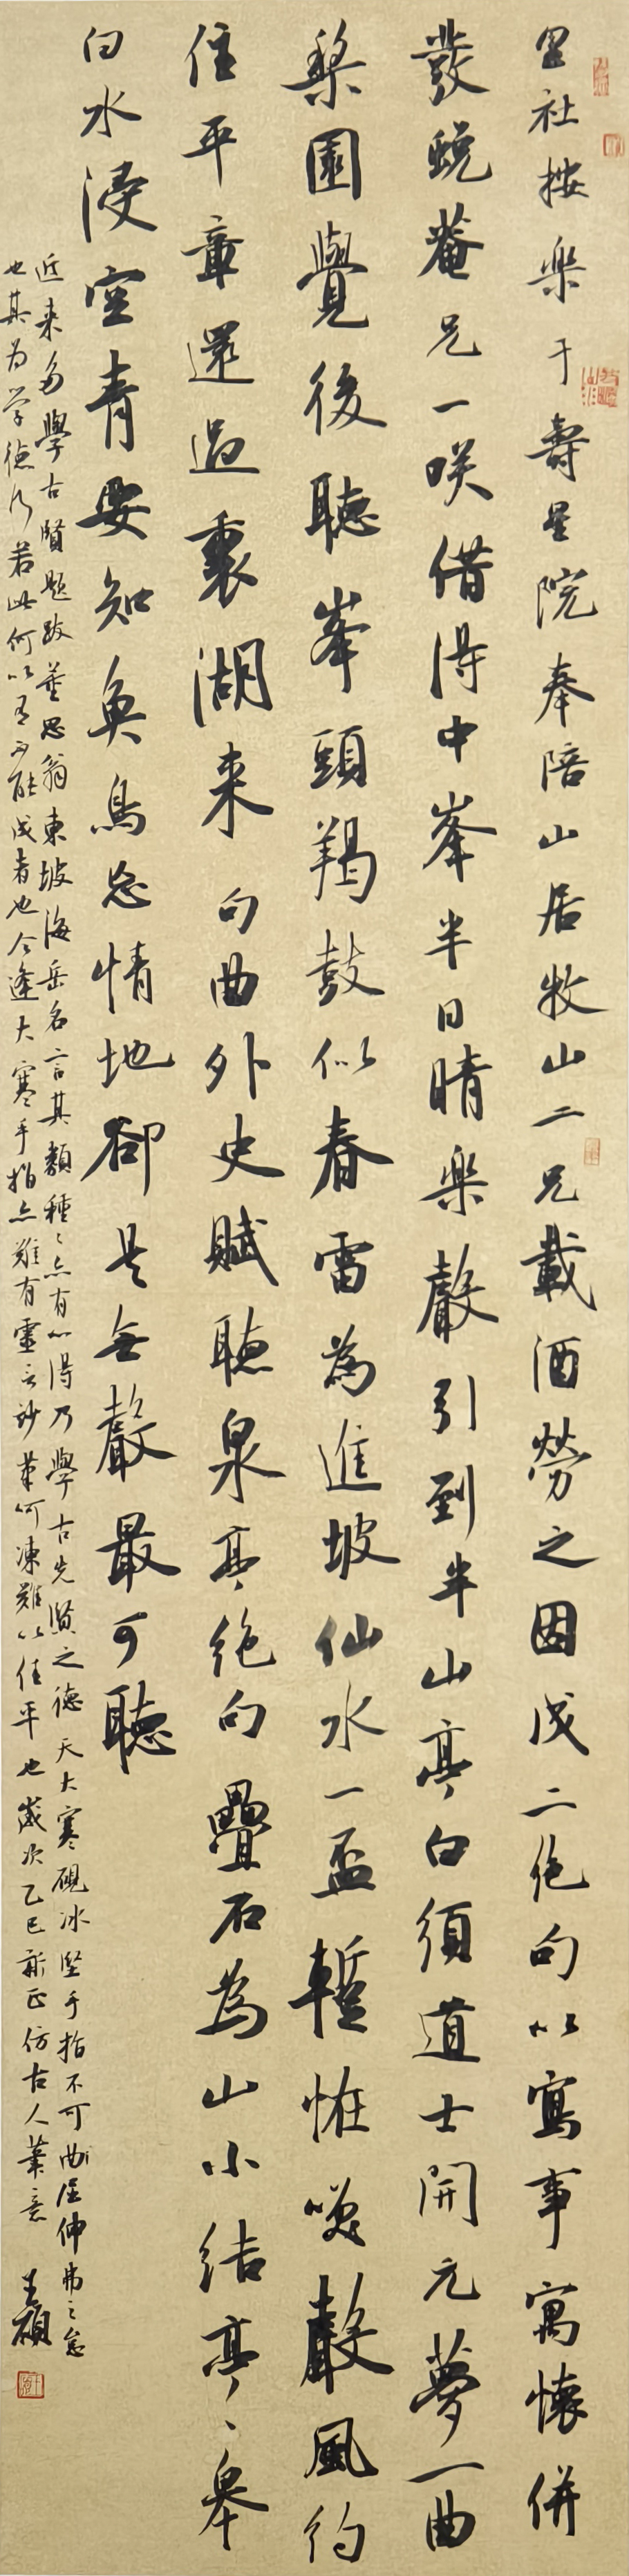 里社按樂于壽星院奉陪山居牧山二兄載酒勞之因成二絕句以寫事寓懷併
發蛻菴兄一咲借得中峯半日晴樂聲引到半山亭白須道士開元夢一曲
棃園覺後聽峯頭羯鼓似春雷為進坡仙水一盃蹔恠嘆聲風約
住平章還過裏湖来句曲外史賦聽泉亭絕句疊石為山小結亭亭皋
白水浸空青要知魚鳥忘情地卻是無聲最可聽
近来多學古賢題跋董思翁東坡海岳名言其類種種亦有心得乃學古先賢之德天大寒硯冰堅手指不可曲屈伸弗之怠
也其为学德行若此何以有不能成者也今逢大寒手指亦難有靈云妙筆何凍難以佳平也歲次乙巳新正仿古人筆意 王碩